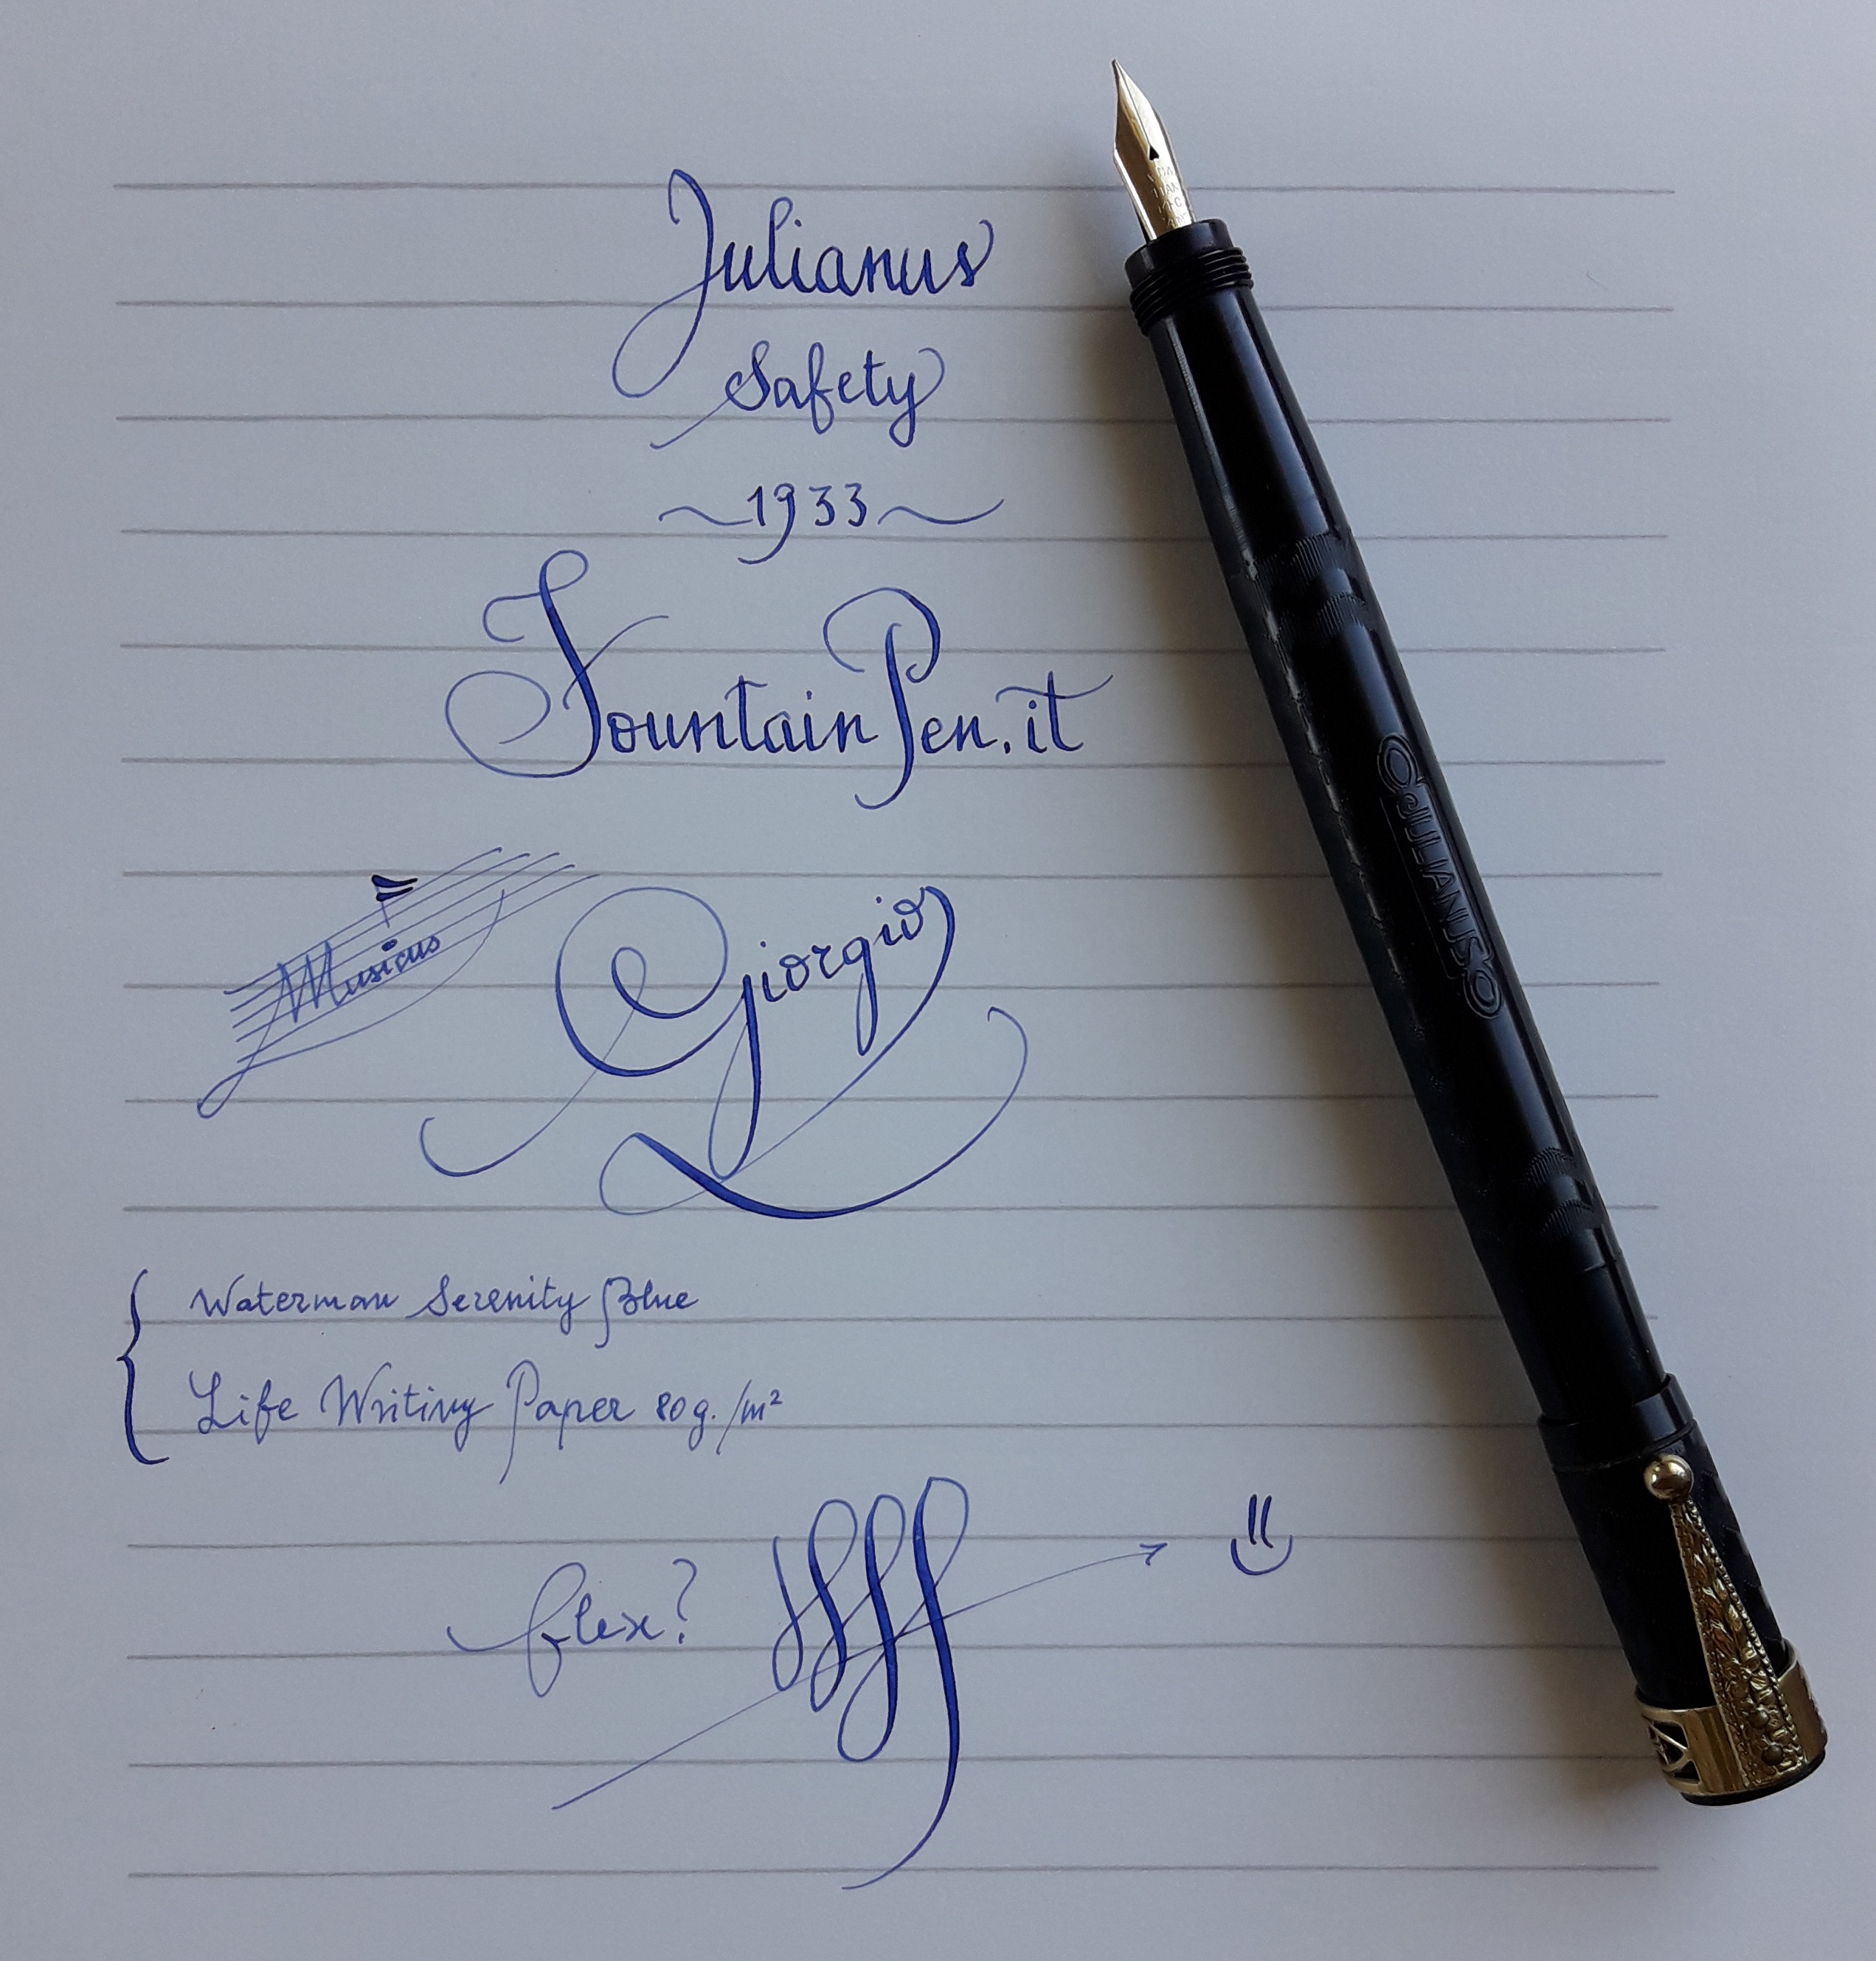 Julianus
Safety
~1933~
FountainPen.it
Musicus
Giorgio
Waterman Serenity Blue
Life Writing Paper 80g./m²
flex?
JULIANUS